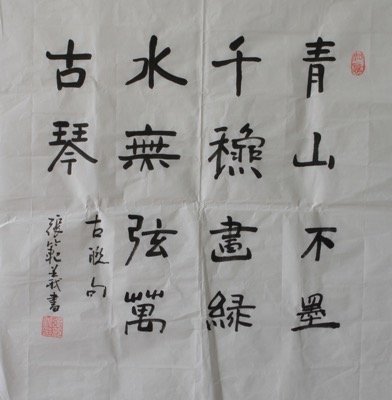 青山不墨
千龝畫緑
水無弦萬
古琴
古聯句
張範義書